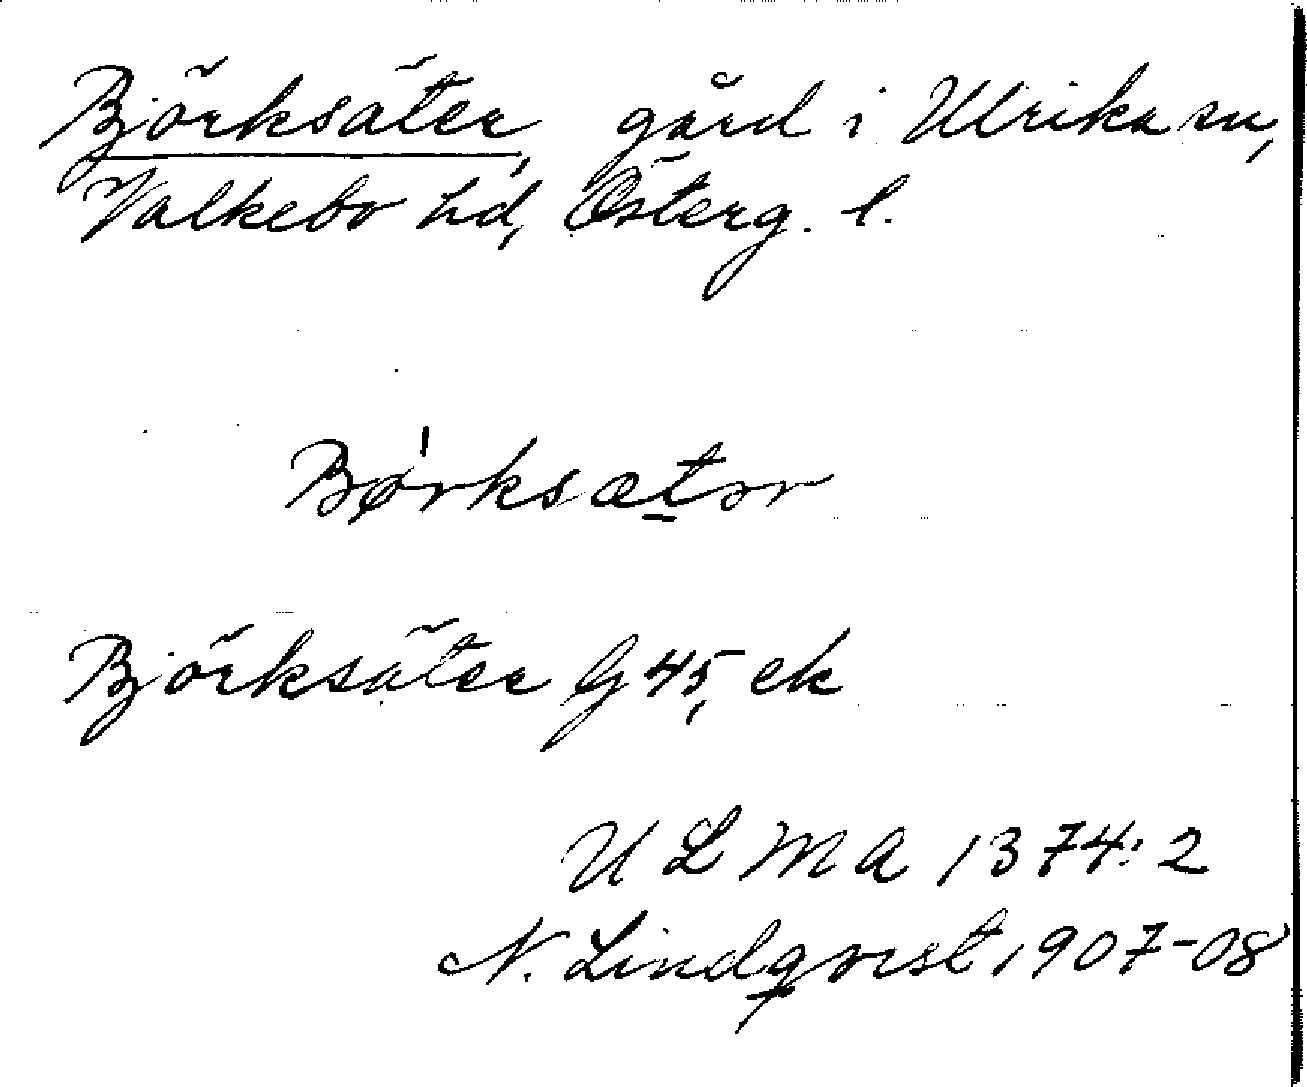 Björksäter, gård i Ulrika sn,
Valkebo hd, Österg. l.
Bø̍rksæt̠ər
Björksäter G 45, ek
ULMA 1374:2
N. Lindqvist 1907-08